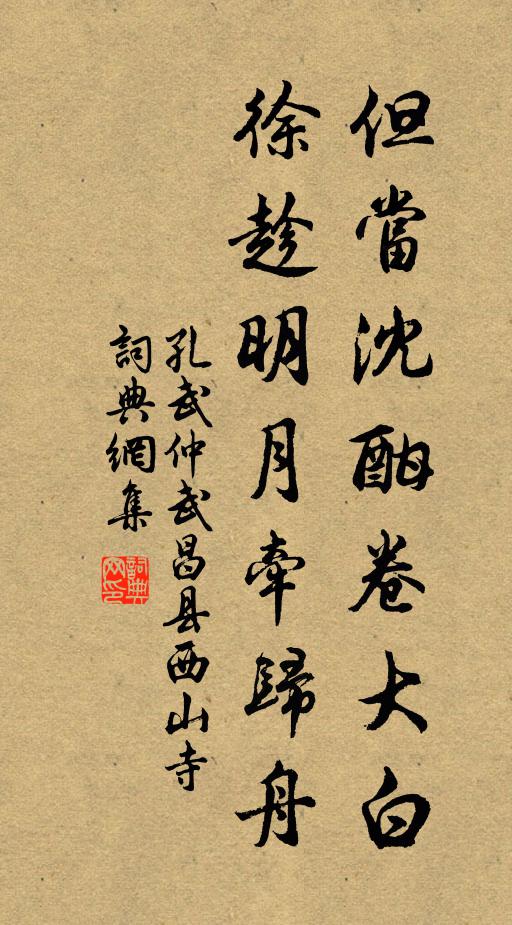 但當沈酣卷大白
徐趁明月牽歸舟
孔武仲武昌县西山寺
詞典網集
詞典網印